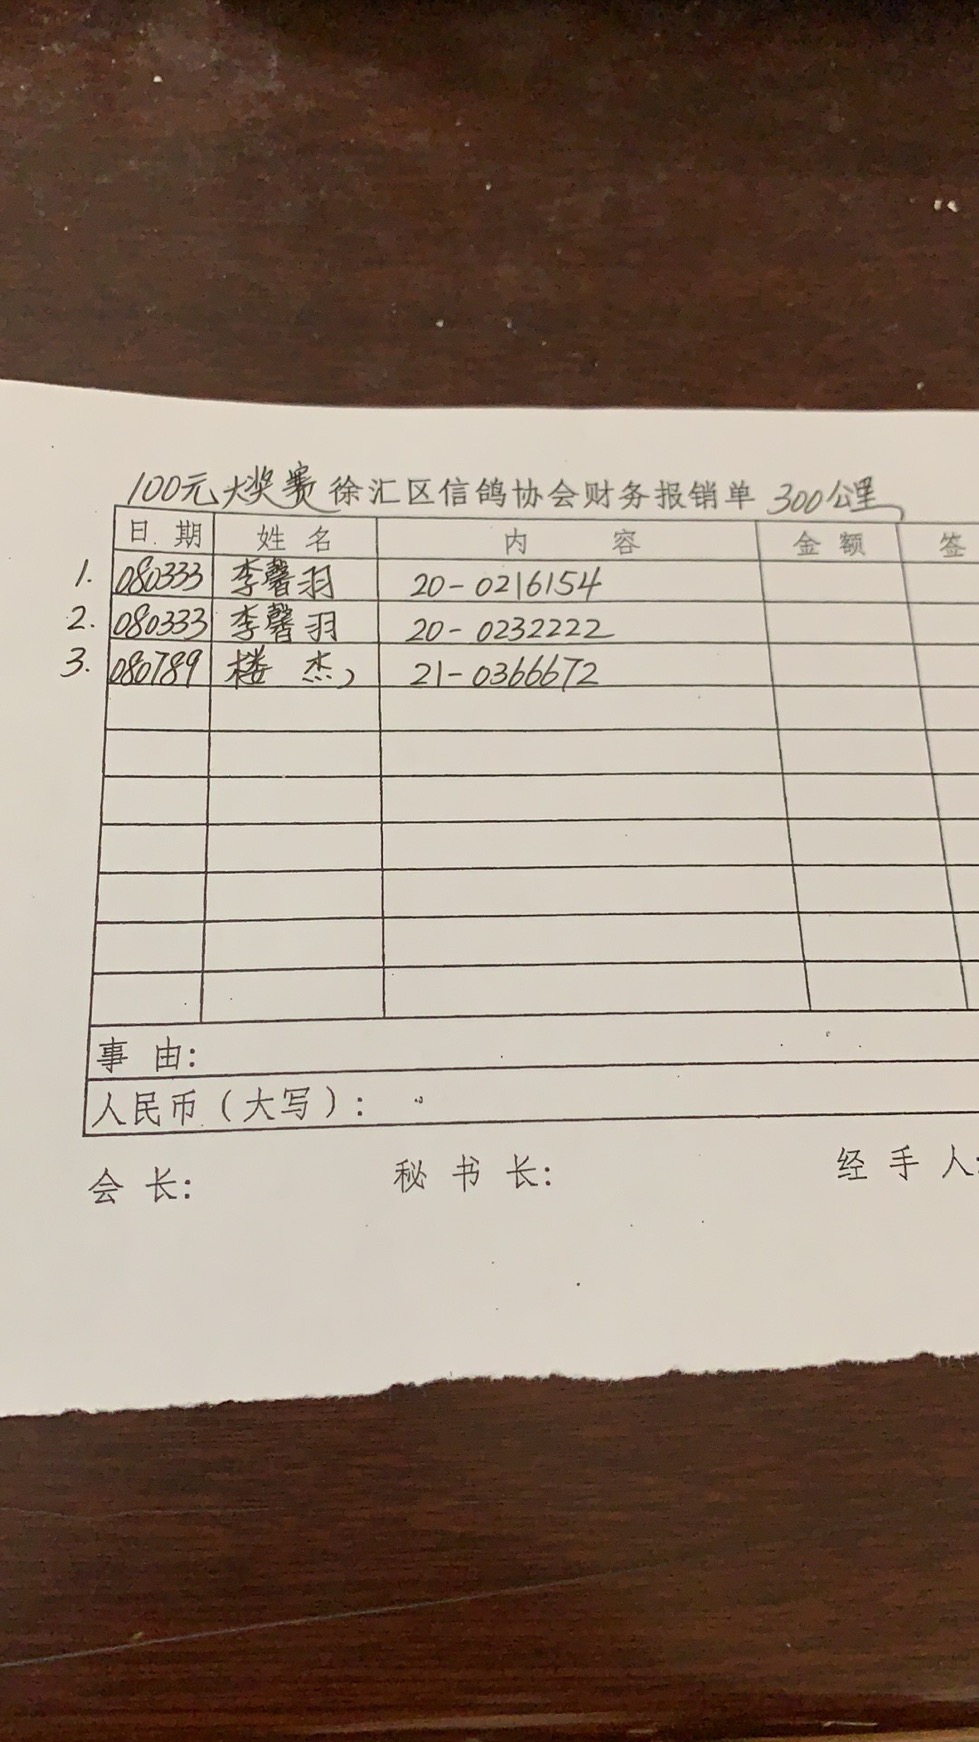 100元大奖赛 徐汇区信鸽协会财务报销单 300公里
日期 姓名 内容 金额 签
1. 080333 李馨羽 20-0216154
2. 080333 李馨羽 20-0232222
3. 080789 楼杰 21-0366672
事由:
人民币(大写):
会长: 秘书长: 经手人: